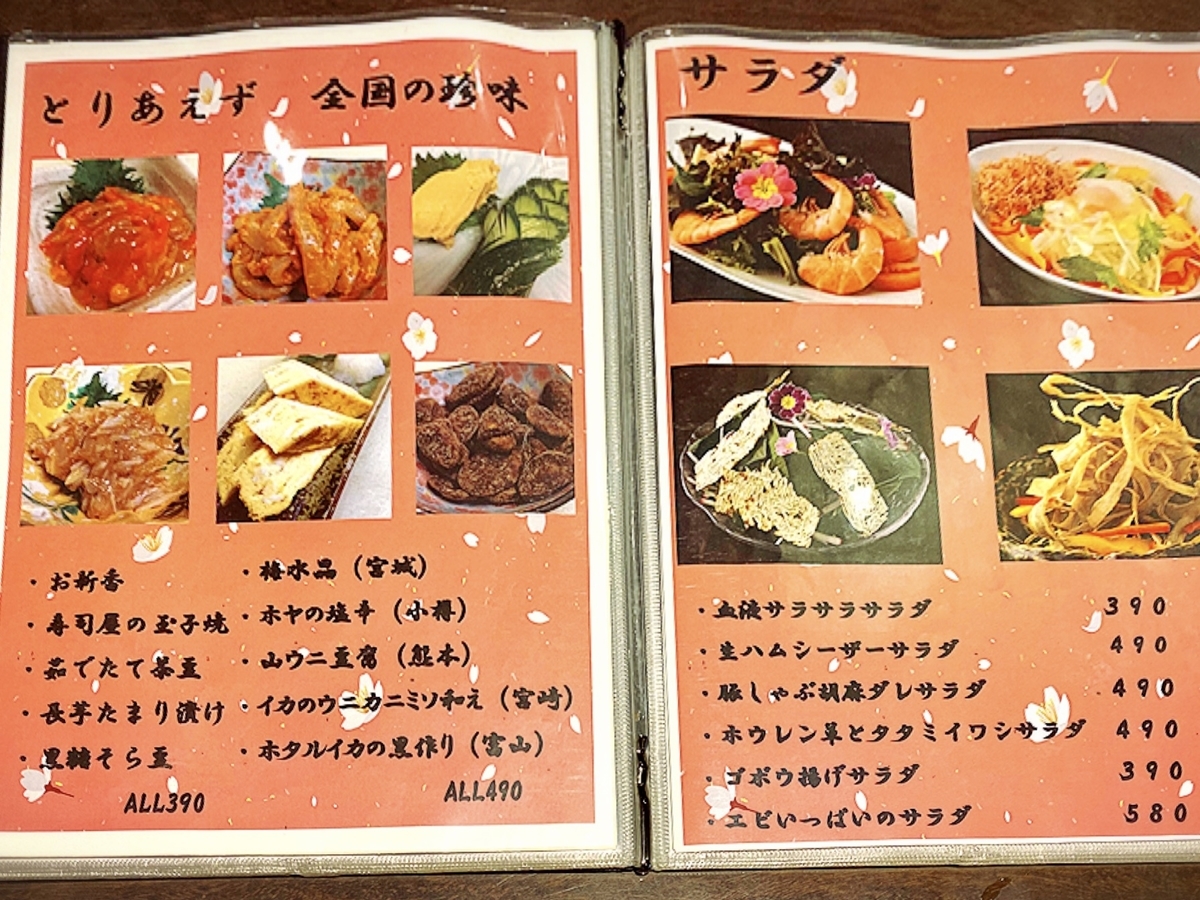 とりあえず 全国の珍味
・お新香
・寿司屋の玉子焼
・茹でたて茶豆
・長芋たまり漬け
・黒糖そら豆
ALL390
・梅水晶（宮城）
・ホヤの塩辛（小樽）
・山ウニ豆腐（熊本）
・イカのウニカニミソ和え（宮崎）
・ホタルイカの黒作り（富山）
ALL490
サラダ
・血液サラサラサラダ 390
・生ハムシーザーサラダ 490
・豚しゃぶ胡麻ダレサラダ 490
・ホウレン草とタタミイワシサラダ 490
・ゴボウ揚げサラダ 390
・エビいっぱいのサラダ 580